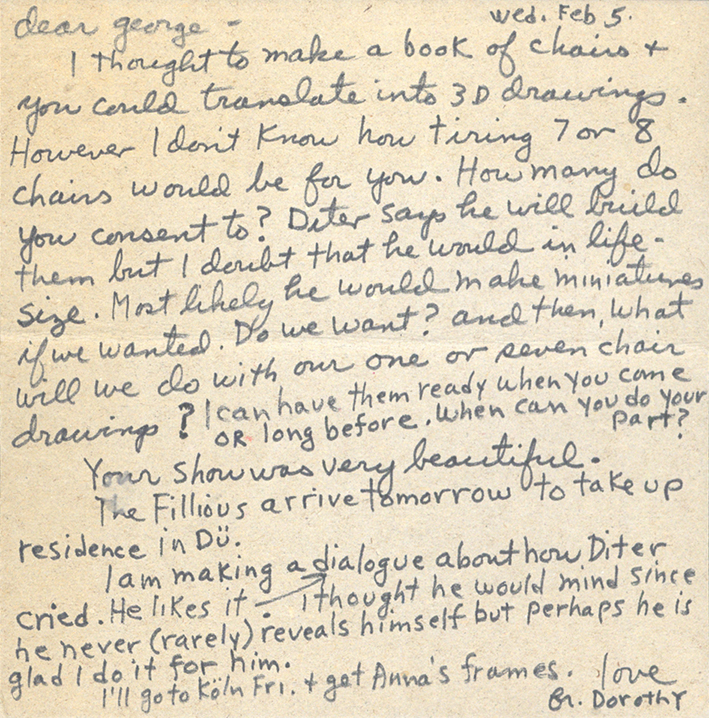 wed. Feb 5.
dear george -
I thought to make a book of chairs +
you could translate into 3D drawings.
However I don't know how tiring 7 or 8
chairs would be for you. How many do
you consent to? Diter says he will build
them but I doubt that he would in life-
size. Most likely he would make miniatures
if we wanted. Do we want? and then, what
will we do with our one or seven chair
drawings? I can have them ready when you come
OR long before. When can you do your
part?
Your show was very beautiful.
The Fillious arrive tomorrow to take up
residence in Dü.
I am making a dialogue about how Diter
cried. He likes it. I thought he would mind since
he never (rarely) reveals himself but perhaps he is
glad I do it for him.
I'll go to Köln Fri. + get Anna's frames. love
Dorothy